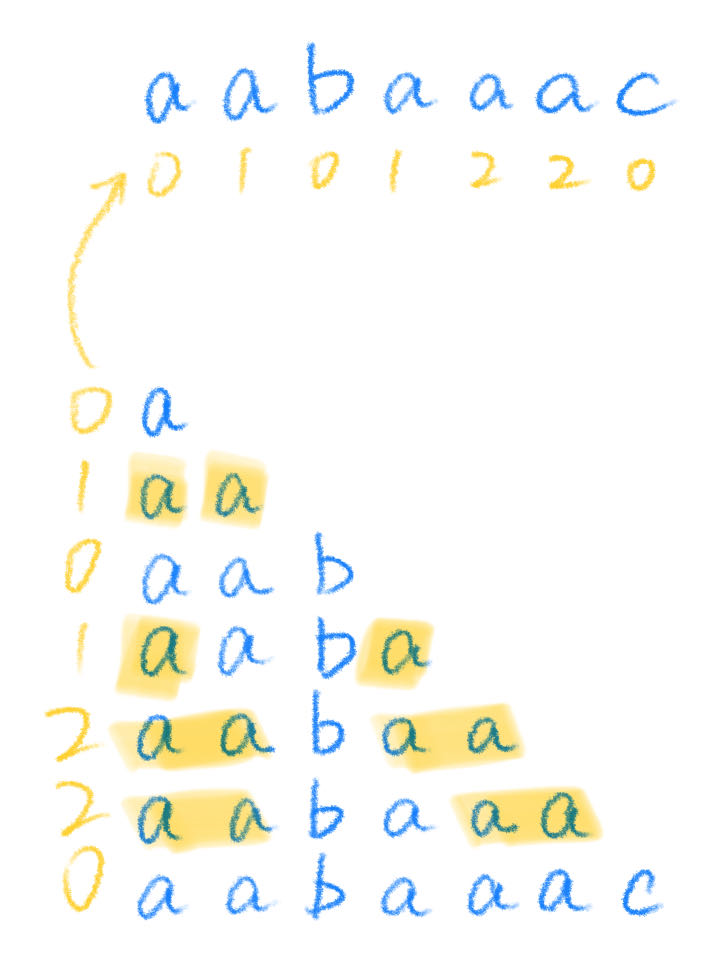 a a b a a a c
0 1 0 1 2 2 0
0 a
1 a a
0 a a b
1 a a b a
2 a a b a a
2 a a b a a a
0 a a b a a a c